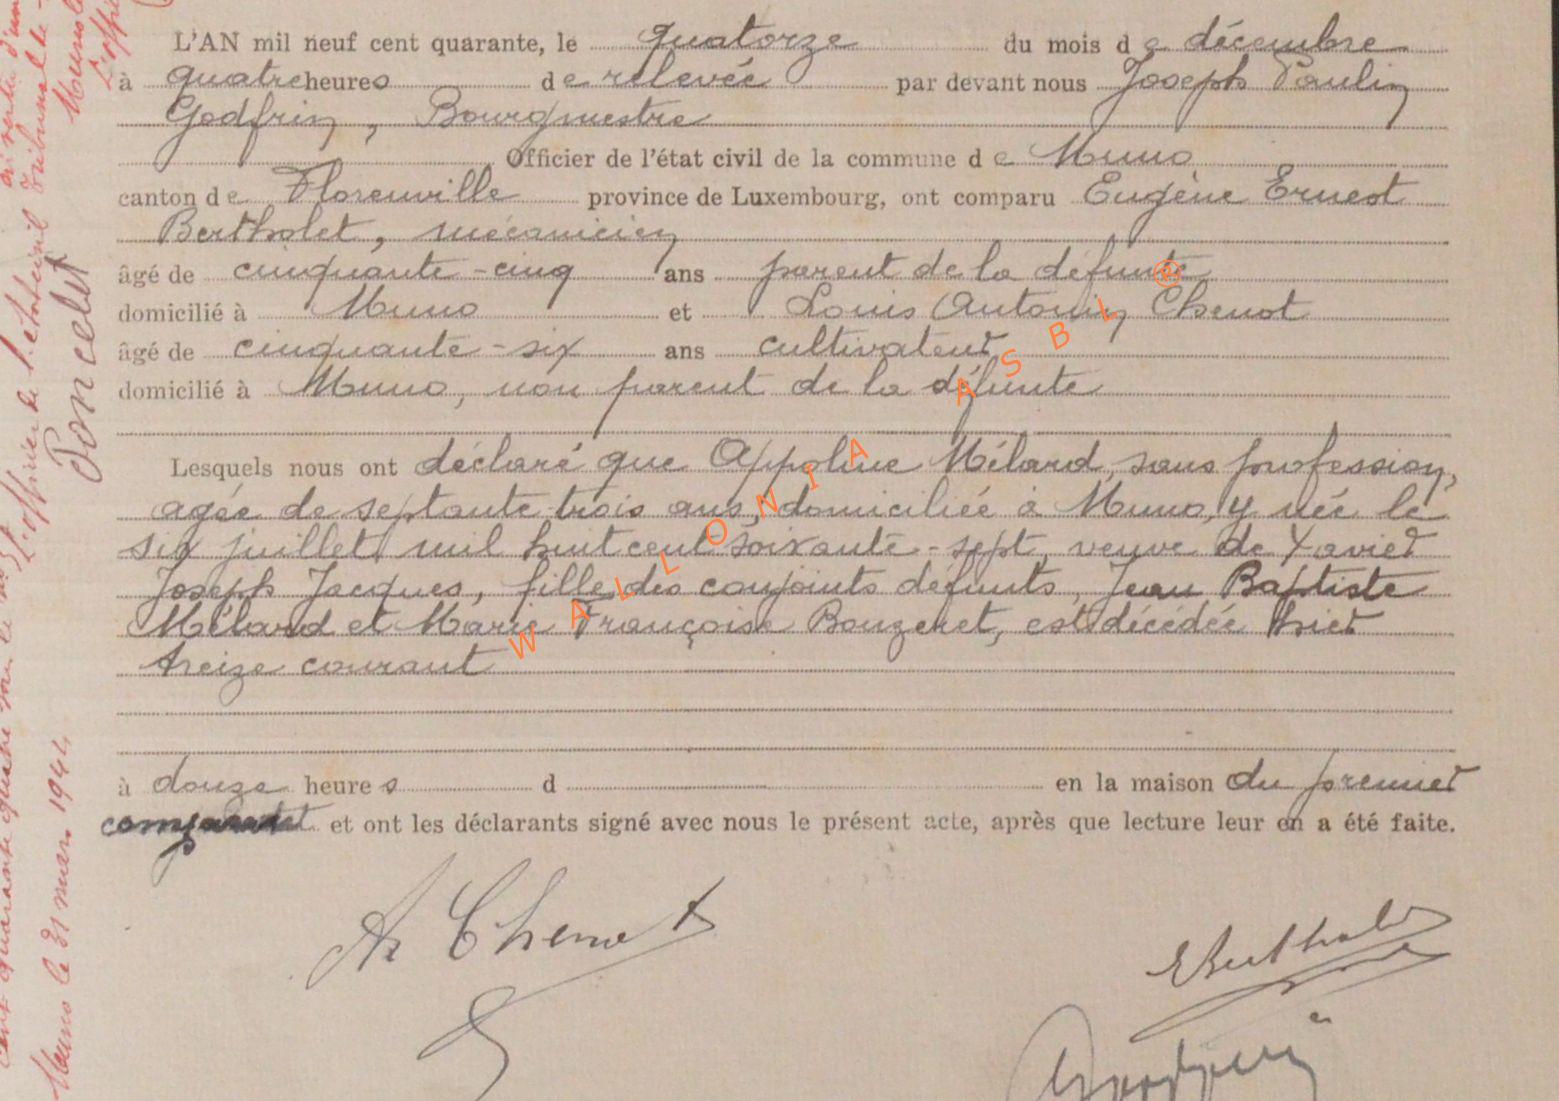 L'AN mil neuf cent quarante, le quatorze du mois de décembre
à quatre heures de relevée par devant nous Joseph Paulin
Godfrin, Bourgmestre
Officier de l'état civil de la commune de Muno
canton de Florenville province de Luxembourg, ont comparu Eugène Ernest
Bertholet, mécanicien
âgé de cinquante-cinq ans parent de la défunte
domicilié à Muno et Louis Antonin Chenot
âgé de cinquante-six ans cultivateur
domicilié à Muno, non parent de la défunte
Lesquels nous ont déclaré que Appoline Mélard, sans profession,
agée de septante trois ans, domiciliée à Muno, y née le
six juillet mil huit cent soixante-sept, veuve de Xavier
Joseph Jacques, fille des conjoints défunts, Jean Baptiste
Mélard et Marie Françoise Bouzeret, est décédée hier
treize courant
à douze heures d en la maison du premier
comparant et ont les déclarants signé avec nous le présent acte, après que lecture leur en a été faite.
Ar Chenot
EBertholet
Godfrin
WALLONIA ASBL ®
Muno le 31 mars 1944
L'officier de l'état civil
Poncelet